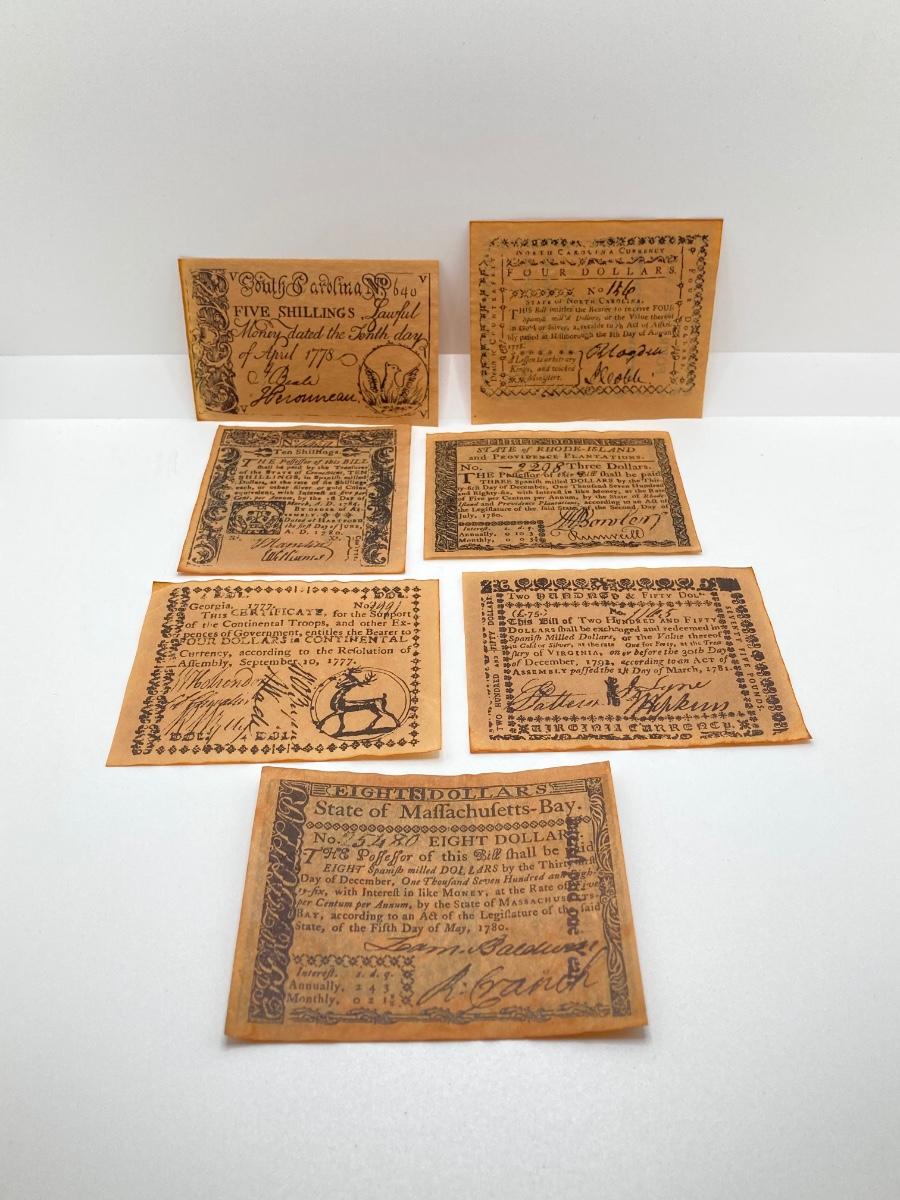 South Carolina No 640
FIVE SHILLINGS Lawful
Money dated the Tenth day
of April 1778
NORTH CAROLINA CURRENCY
FOUR DOLLARS.
No 156
STATE of NORTH CAROLINA.
THIS Bill entitles the Bearer to receive FOUR
Spanish mill'd Dollars, or the Value thereof
in Gold or Silver,
passed at Hillsborough the 8th Day of August
1778.
A Lesson to arbitrary
Kings, and wicked
Ministers.
Ten Shillings.
THE Possessor of this BILL
shall be paid by the Treasurer
of the STATE of CONNECTICUT, TEN
SHILLINGS, in Spanish milled
Dollars, at the rate of six Shillings
each, or other Silver or gold Coin
equivalent, with Interest at five per
Cent per Annum, by the 1st Day of
March, A. D. 1784.
BY ORDER of AS-
SEMBLY.
Dated at HARTFORD
the first Day of JUNE,
A. D. 1780.
Williams
THREE DOLLARS.
STATE of RHODE-ISLAND
and PROVIDENCE PLANTATIONS.
No. 2298 Three Dollars.
THE Possessor of this Bill shall be paid
THREE Spanish milled DOLLARS by the Thir-
ty-first Day of December, One Thousand Seven Hundred
and Eighty-six, with Interest in like Money, at the Rate
of Five per Centum per Annum, by the State of Rhode-
Island and Providence Plantations, according to an Act of
the Legislature of the said State, of the Second Day of
July, 1780.
Interest. s. d. q.
Annually. 0 10 3
Monthly. 0 0 3
Georgia, 1777. No
THIS CERTIFICATE, for the Support
of the Continental Troops, and other Ex-
pences of Government, entitles the Bearer to
FOUR DOLLARS in CONTINENTAL
Currency, according to the Resolution of
Assembly, September 10, 1777.
TWO HUNDRED & FIFTY DOL
(£.75.) No.
This Bill of TWO HUNDRED AND FIFTY
DOLLARS shall be exchanged and redeemed in
Spanish Milled Dollars, or the Value thereof
in Gold or Silver, at the rate One for Forty, at the Trea
sury of VIRGINIA, on or before the 30th Day
of December, 1792, according to an ACT of
ASSEMBLY passed the 1st Day of March, 1781.
TWO HUNDRED AND FIFTY DOLLARS
SEVENTY FIVE POUNDS.
VIRGINIA CURRENCY.
EIGHT DOLLARS
State of Massachusetts-Bay.
No. 25480 EIGHT DOLLARS
THE Possessor of this Bill shall be paid
EIGHT Spanish milled DOLLARS by the Thirty-first
Day of December, One Thousand Seven Hundred and Eigh-
ty-six, with Interest in like MONEY, at the Rate of Five
per Centum per Annum, by the State of MASSACHUSETTS-
BAY, according to an Act of the Legislature of the said
State, of the Fifth Day of May, 1780.
Loam. Baldwin
R. Cranch
Interest. s. d. q.
Annually. 2 4 3
Monthly. 0 2 1